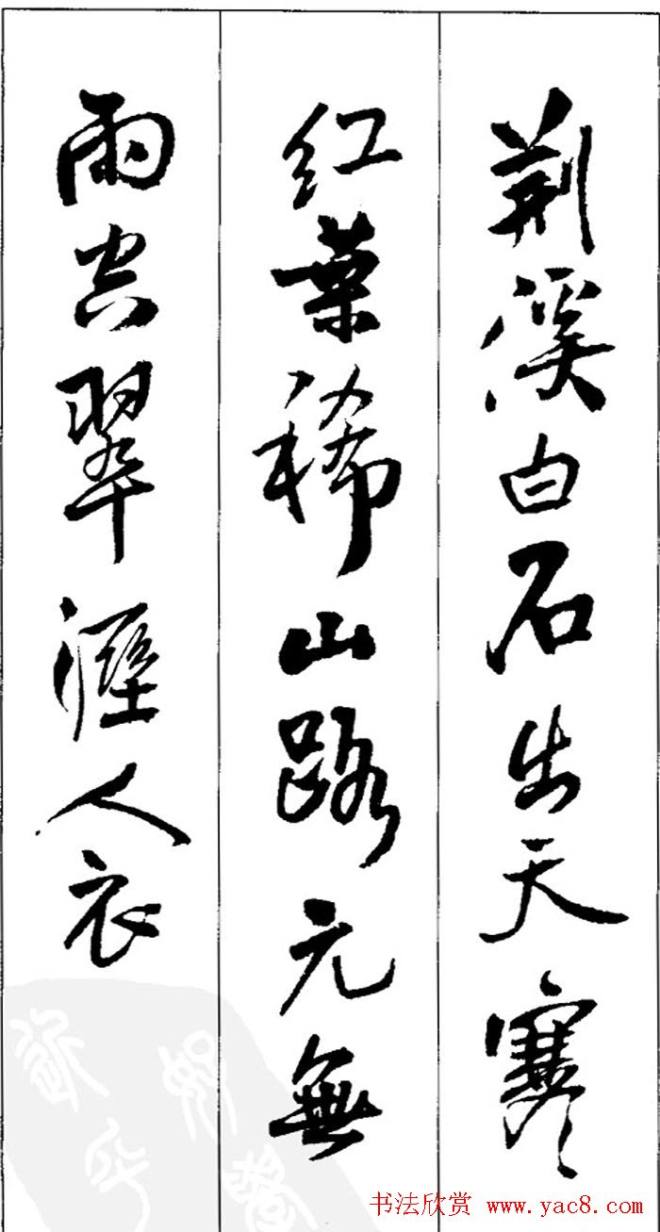 荆溪白石出天寒
红葉稀山路元無
雨空翠溼人衣
书法欣赏 www.yac8.com